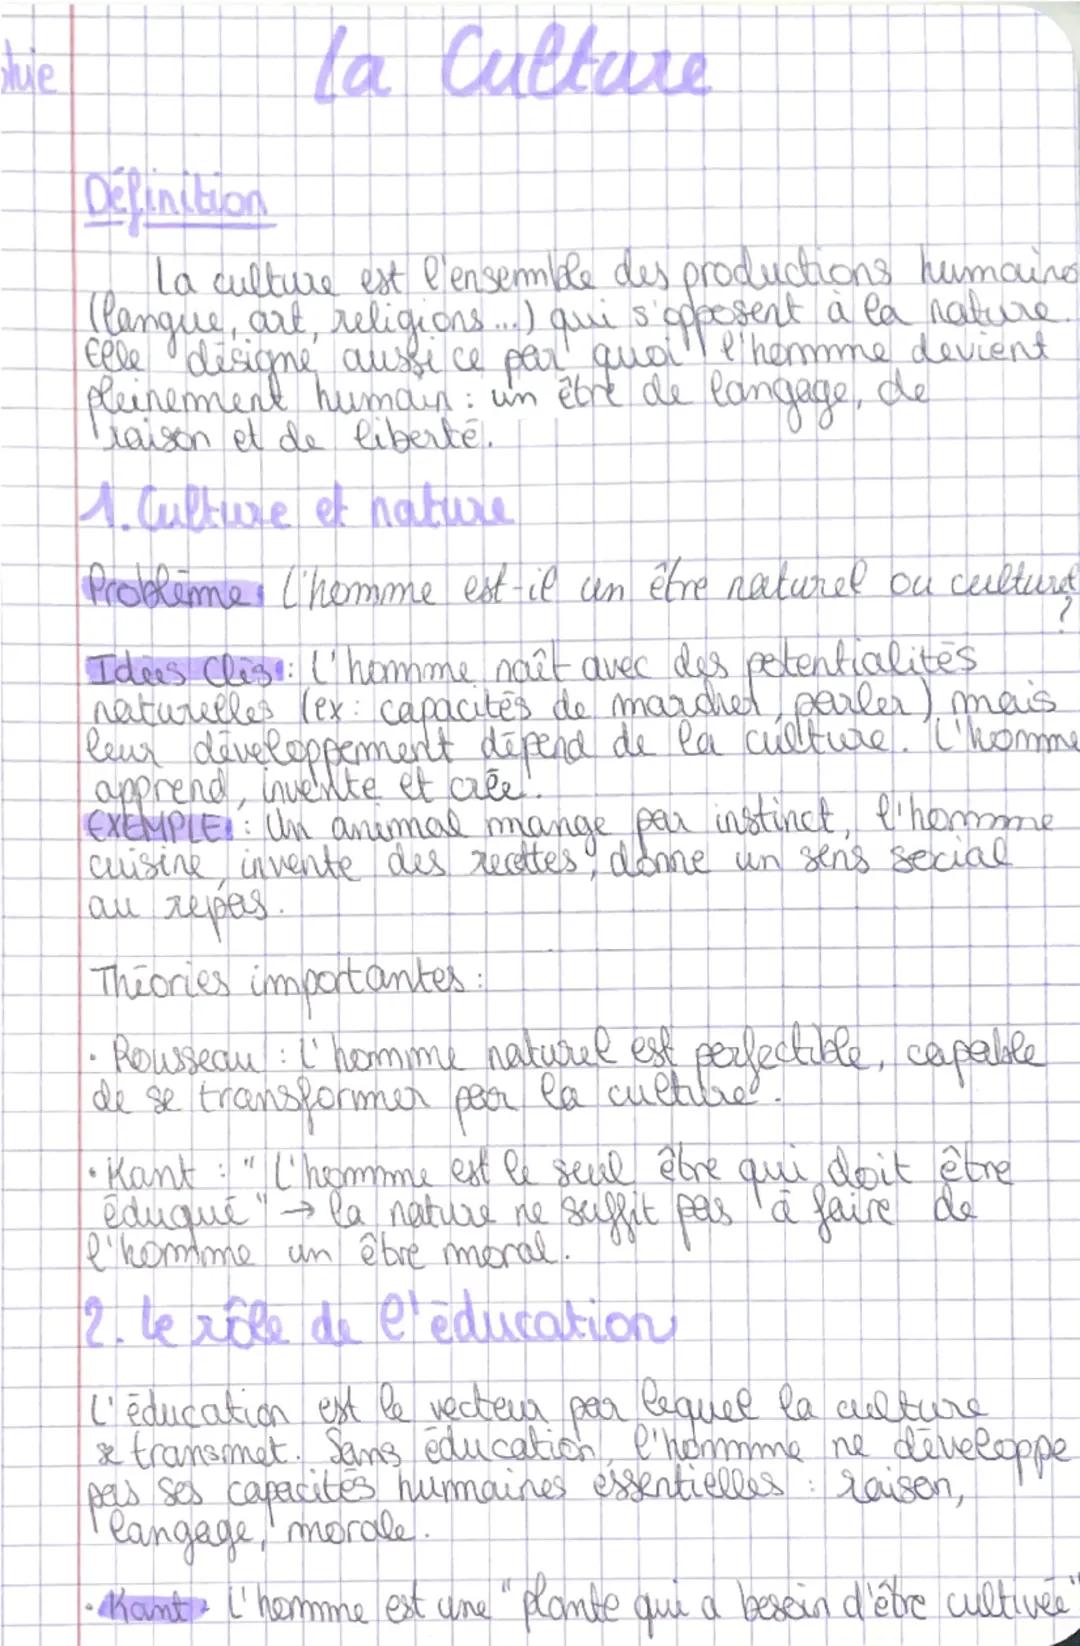 La Culture
Définition
La culture est l'ensemble des productions humaines
(langue, art, religions...) qui s'opposent à la nature.
Elle désigne aussi ce par quoi l'homme devient
pleinement humain : un être de langage, de
raison et de liberté.
1. Culture et nature
Problème : L'homme est-il un être naturel ou culturel
?
Idées clés : L'homme naît avec des potentialités
naturelles (ex : capacités de marcher, parler) mais
leur développement dépend de la culture. L'homme
apprend, invente et crée.
EXEMPLE : Un animal mange par instinct, l'homme
cuisine, invente des recettes, donne un sens social
au repas.
Théories importantes :
· Rousseau : L'homme naturel est perfectible, capable
de se transformer par la culture.
· Kant : "L'homme est le seul être qui doit être
éduqué" → la nature ne suffit pas à faire de
l'homme un être moral.
2. Le rôle de l'éducation
L'éducation est le vecteur par lequel la culture
se transmet. Sans éducation, l'homme ne développe
pas ses capacités humaines essentielles : raison,
langage, morale.
· Kant : L'homme est une "plante qui a besoin d'être cultivée"